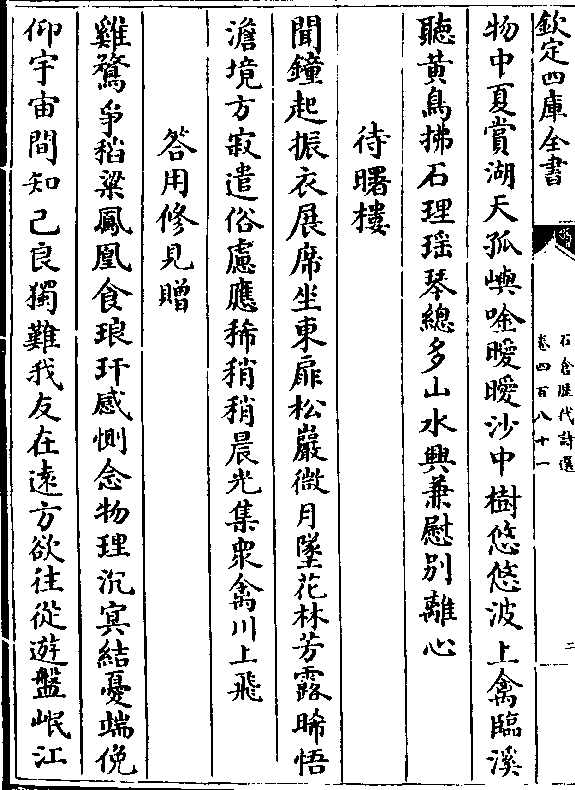 欽定四庫全書
石倉歷代詩選
卷四百八十一
二
物中夏賞湖天孤嶼唫曖曖沙中樹悠悠波上禽臨溪
聽黃鳥拂石理瑶琴總多山水興兼慰別離心
待曙樓
聞鐘起振衣展席坐東扉松巖微月墜花林芳露晞悟
澹境方寂遣俗慮應稀稍稍晨光集衆禽川上飛
答用修見贈
雞鶩爭稻粱鳳凰食琅玕感惻念物理沉冥結憂端俛
仰宇宙間知己良獨難我友在遠方欲往從遊盤岷江